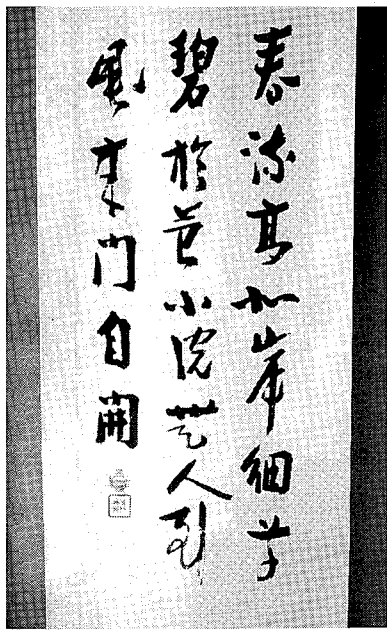 春流高似岸細草
碧於苔小院無人到
風來門自開